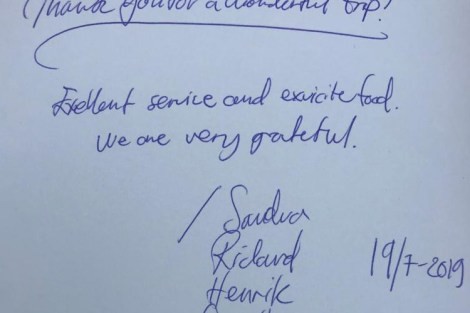 Thank you for a wonderful trip!
Exellent service and exvicite food.
We are very grateful.
/ Sandra
Richard
19/7-2019
Henrik